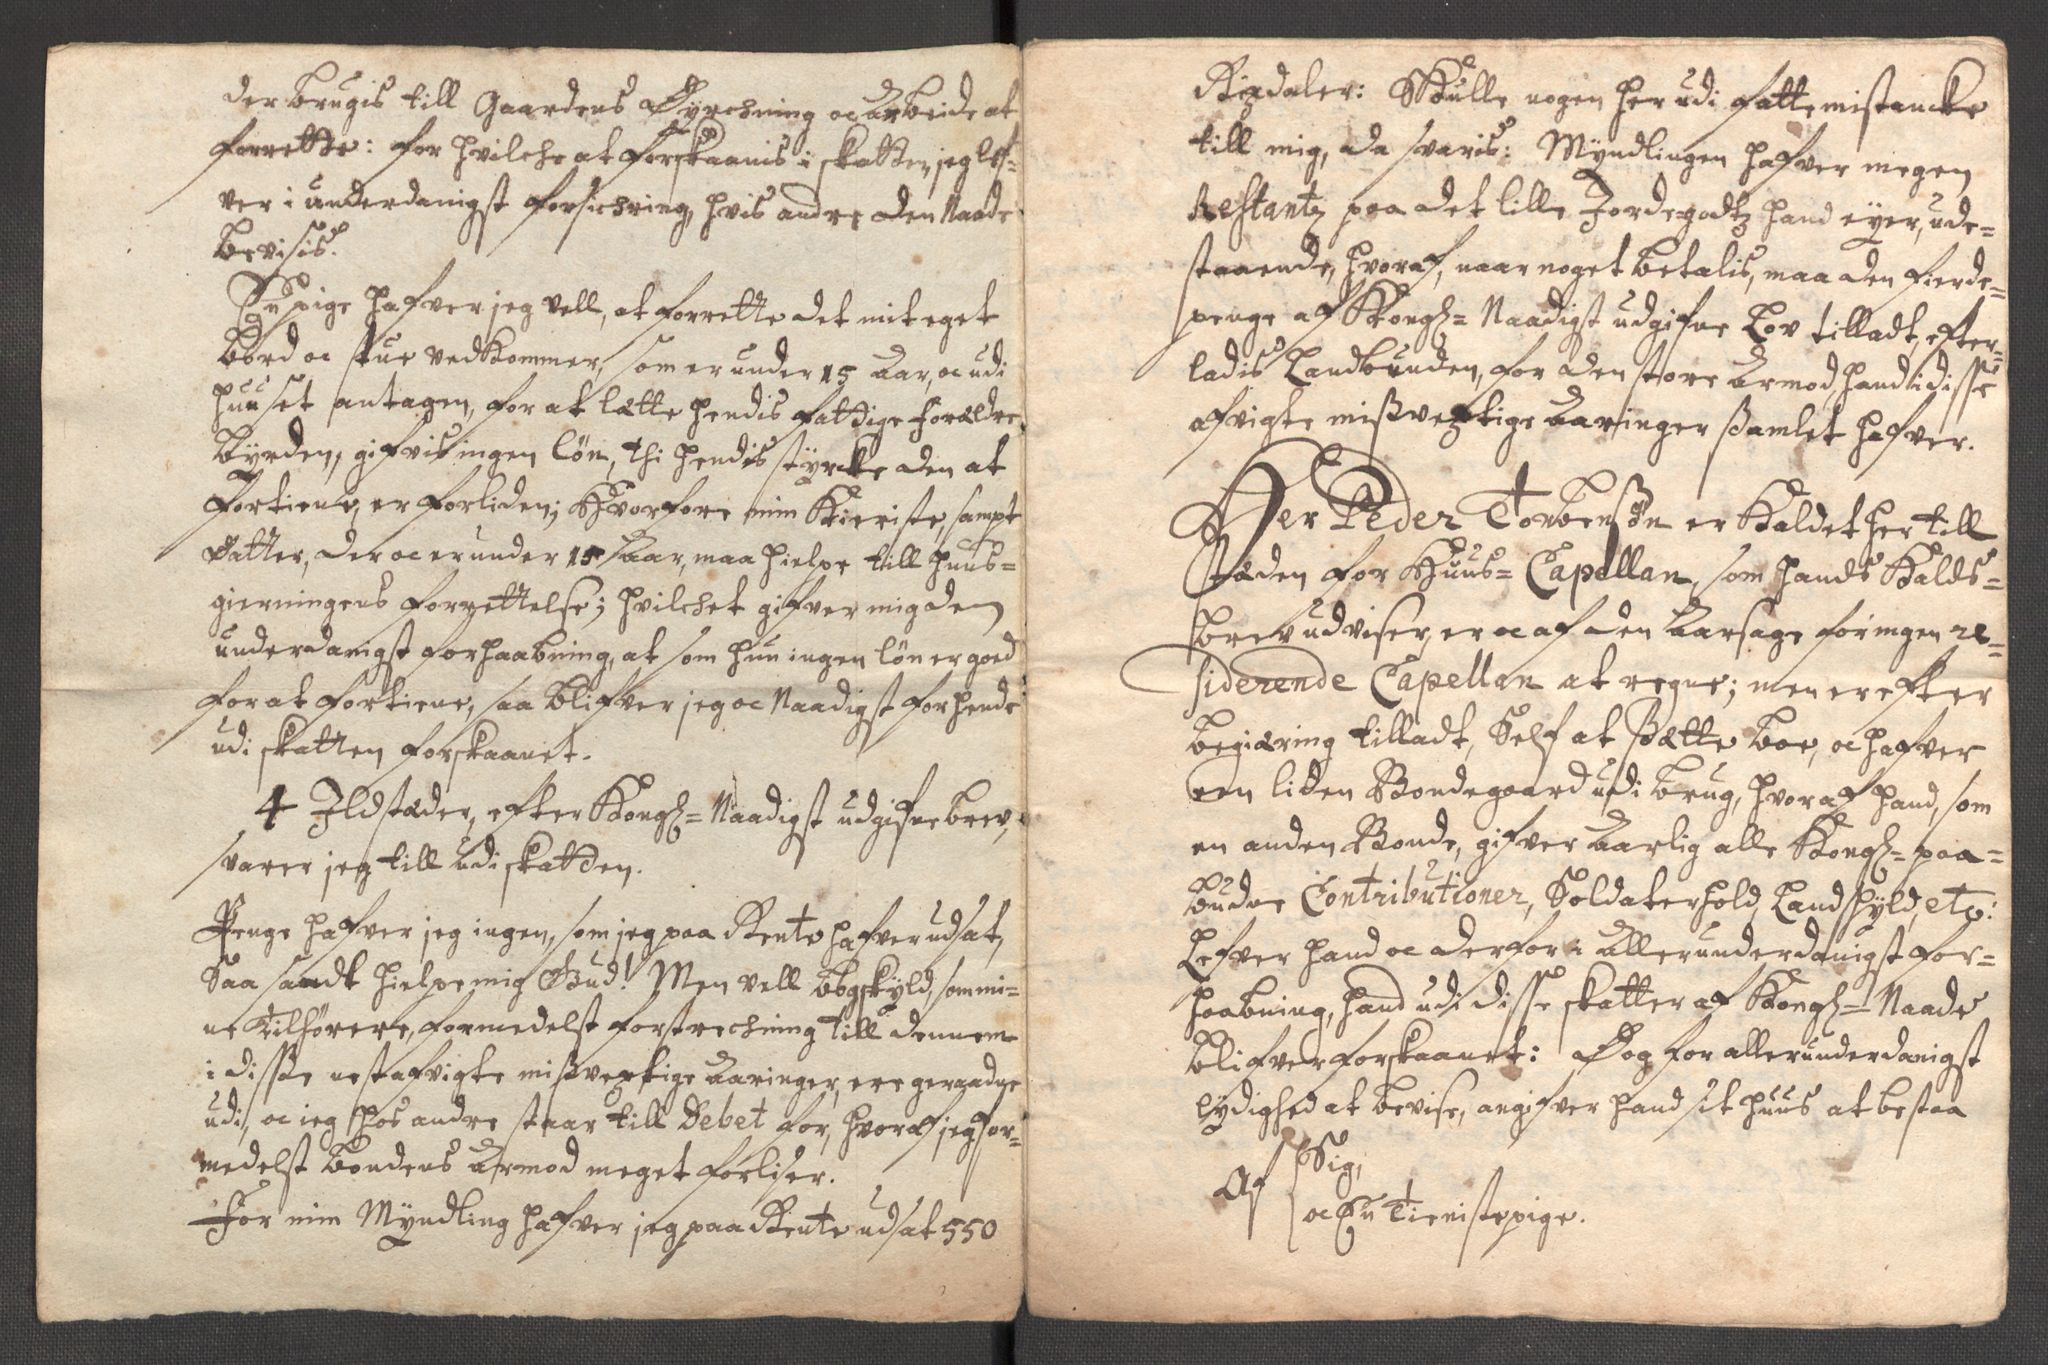 der brugis till Gaardens Dyrchning oc arbeide at
forrette: for hvilche at forskaanis i skatten, jeg lef-
ver i underdanigst forsichring, hvis andre den Naade
bevisis.
En pige hafver jeg vell, at forrette det mit eget
bord oc stue vedkommer, som er under 15 Aar, oc udi
huuset antagen, for at lætte hendis fattige forældre
byrden, gifvis ingen løn, thi hendis styrcke den at
fortiene, er forliden; Hvorfore min Kieriste, sampt
Datter, der oc er under 15 Aar, maa hielpe till huus=
gierningens forrettelse; hvilchet gifver mig den
underdanigst forhaabning, at som hun ingen løn er goed
for at fortiene, saa blifver jeg oc Naadigst for hende
udi skatten forskaanet.
4 Ildstæder, efter Kongl= Naadigst udgifne brev,
svarer jeg till udi skatten.
Penge hafver jeg ingen, som jeg paa Rente hafver udsat,
Saa sandt hielpe mig Gud! Men vell bogskyld, som mi-
ne Tilhørere, formedelst forstrechning till dennem
i disse nestafvigte misvextige Aaringer, ere geraadne
udi, oc jeg hos andre staar till Debet for, hvoraf jeg for-
medelst bondens Armod meget forliser.
For min Myndling hafver jeg paa Rente udsat 550
Rixdaler: Skulle nogen her udi fatte mistancke
till mig, da svaris: Myndlingen hafver megen
Restantz paa det lille Jordegodtz hand eyer, ude=
staaende, hvoraf, naar noget betalis, maa den fierde=
penge af Kongl= Naadigst udgifne Lov tilladt, efter=
ladis Landbunden, for den store Armod, hand i disse
afvigte misvextige Aaringer samlet hafver.
Her Peder Torbensøn er kaldet her till
stæden for Huus= Capellan, som hands Kalds=
brev udviser, er oc af den Aarsage for ingen re=
siderende Capellan at regne; men er efter
begiæring tilladt, Self at sætte boe, oc hafver
een liden Bondegaard udi brug, hvoraf hand, som
en anden Bonde, gifver Aarlig alle Kongl= paa=
budne Contributioner, Soldaterhold, Landskyld, etc:
Lefver hand oc derfor i Allerunderdanigst for=
haabning, hand udi disse skatter af Kongl= Naade
blifver forskaanet: Dog for allerunderdanigst
lydighed at bevise, angifver hand sit huus at bestaa
Af Sig,
oc En Tienistepige.